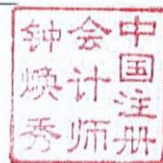 中国注册
会计师
钟焕秀